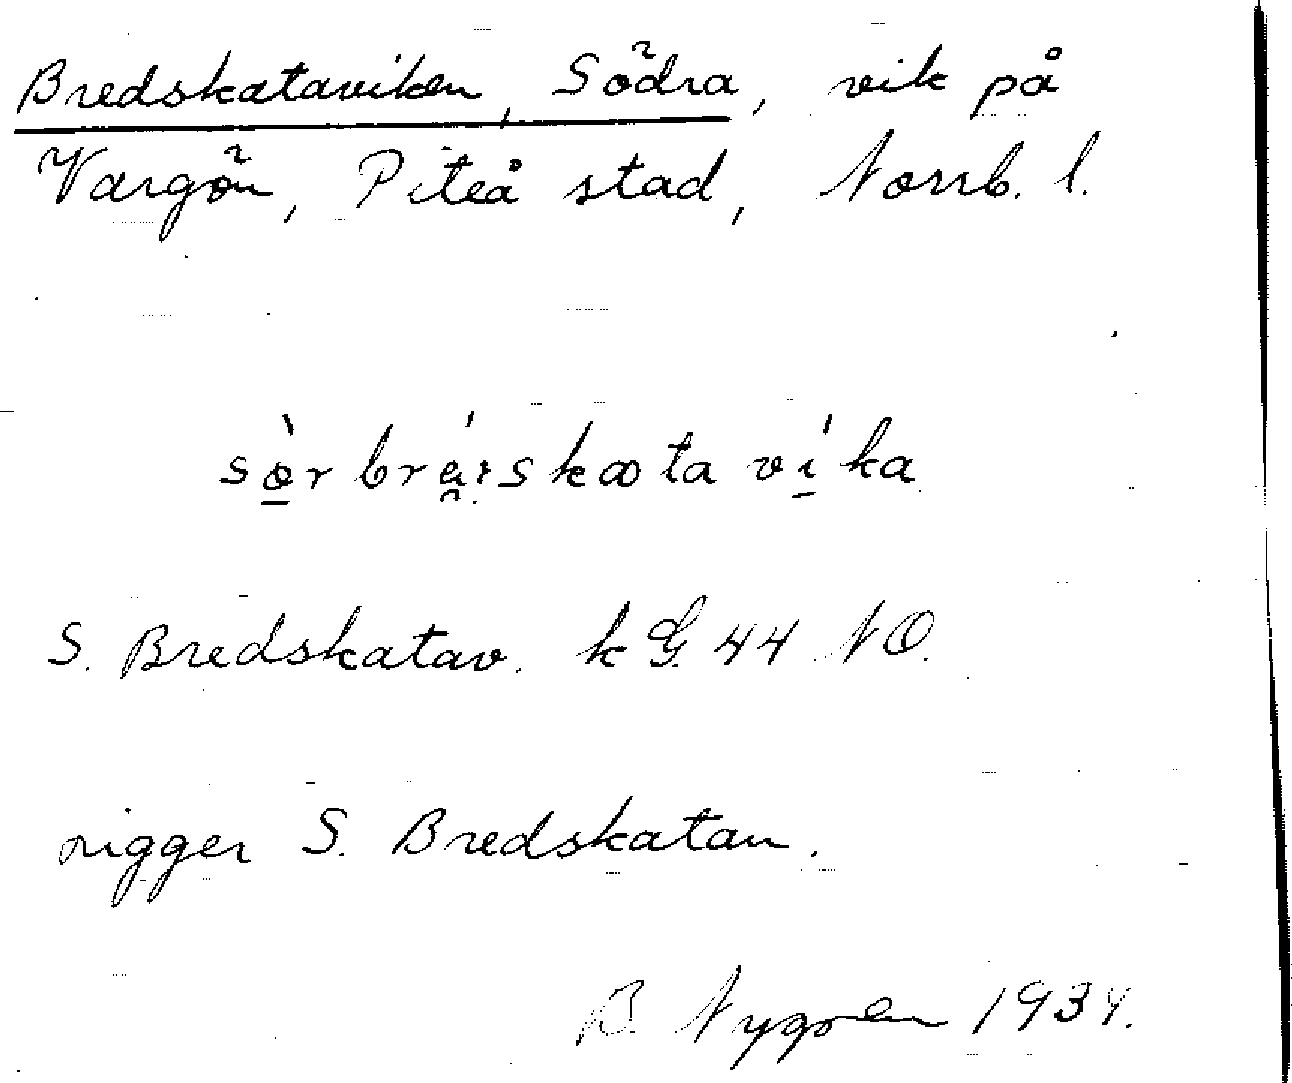 Bredskataviken, Södra, vik på
Vargön, Piteå stad, Norrb. l.
sø̱̀r brá̱:skætaví̱ka
S. Bredskatav. kG. 44 NO.
rigger S. Bredskatan.
B. Nygren 1934.